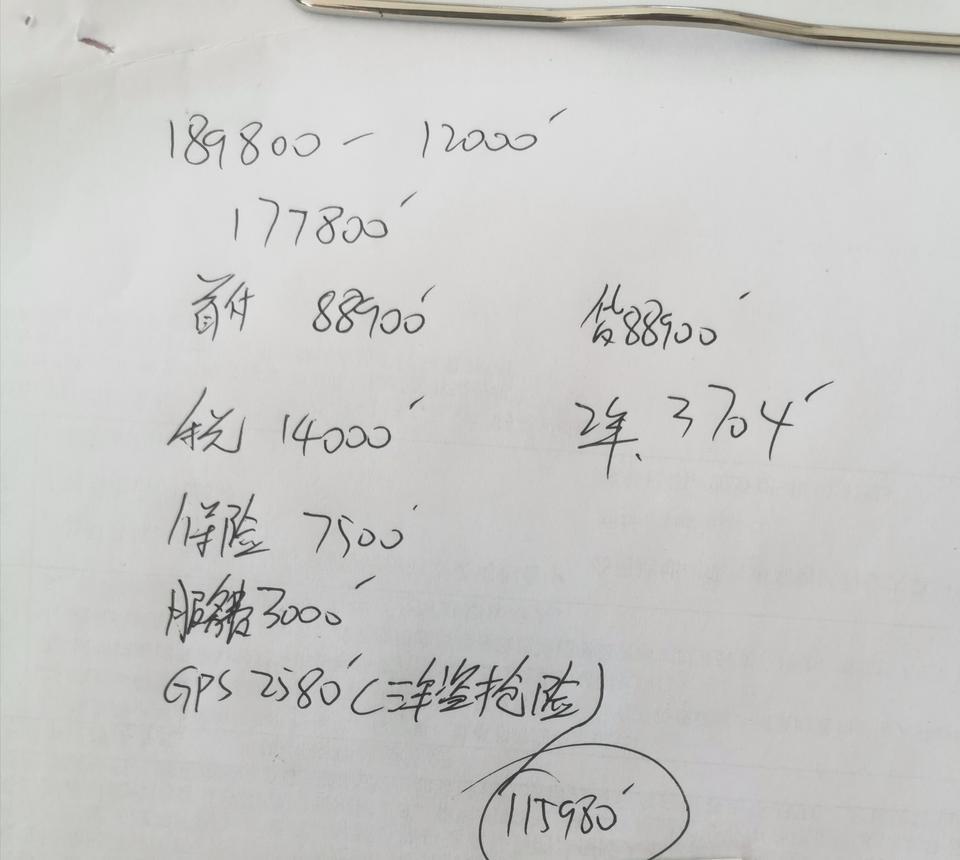 189800 - 12000
177800
首付 88900 贷88900
税 14000 2年、3704
保险 7500
服务费3000
GPS 2580 (三年盗抢险)
115980